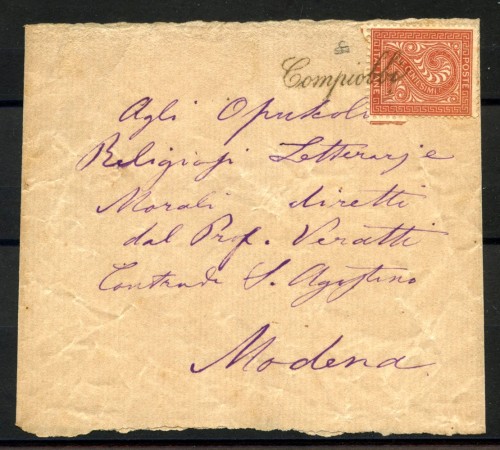 Compiobbi
POSTE ITALIANE
DUE CENTESIMI
Agli Opuscoli
Religiosi Letterarj e
Morali diretti
dal Prof. Veratti
Contrada S. Agostino
Modena